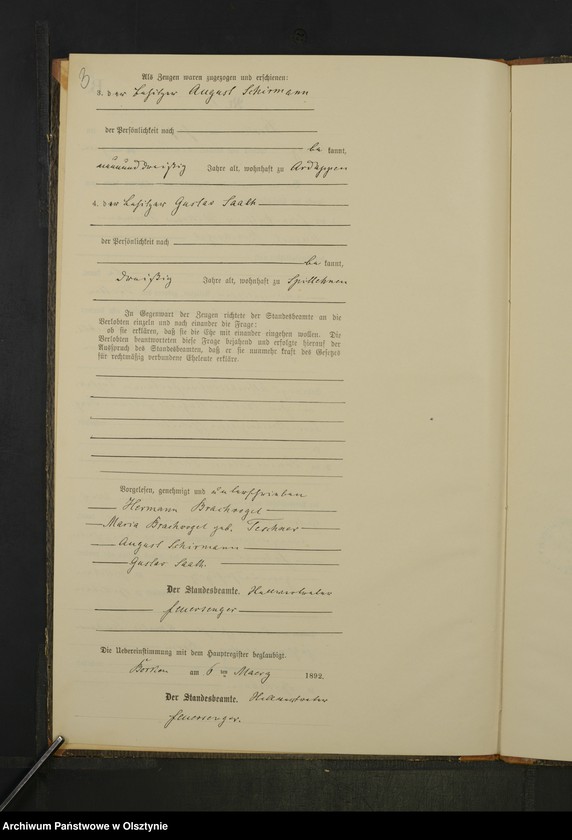 3
Als Zeugen waren zugezogen und erschienen:
3. der Besitzer August Schirmann
der Persönlichkeit nach
be kannt,
neununddreißig Jahre alt, wohnhaft zu Ardappen
4. der Besitzer Gustav Saath
der Persönlichkeit nach
be kannt,
dreißig Jahre alt, wohnhaft zu Spittehnen
In Gegenwart der Zeugen richtete der Standesbeamte an die
Verlobten einzeln und nach einander die Frage:
ob sie erklären, daß sie die Ehe mit einander eingehen wollen. Die
Verlobten beantworteten diese Frage bejahend und erfolgte hierauf der
Ausspruch des Standesbeamten, daß er sie nunmehr kraft des Gesetzes
für rechtmäßig verbundene Eheleute erkläre.
Vorgelesen, genehmigt und unterschrieben
Hermann Brachvogel
Maria Brachvogel geb. Teschner
August Schirmann
Gustav Saath.
Der Standesbeamte.
Feuersenger
Die Uebereinstimmung mit dem Hauptregister beglaubigt.
Borken am 6 ten Maerz 1892.
Der Standesbeamte.
Feuersenger.
Archiwum Państwowe w Olsztynie